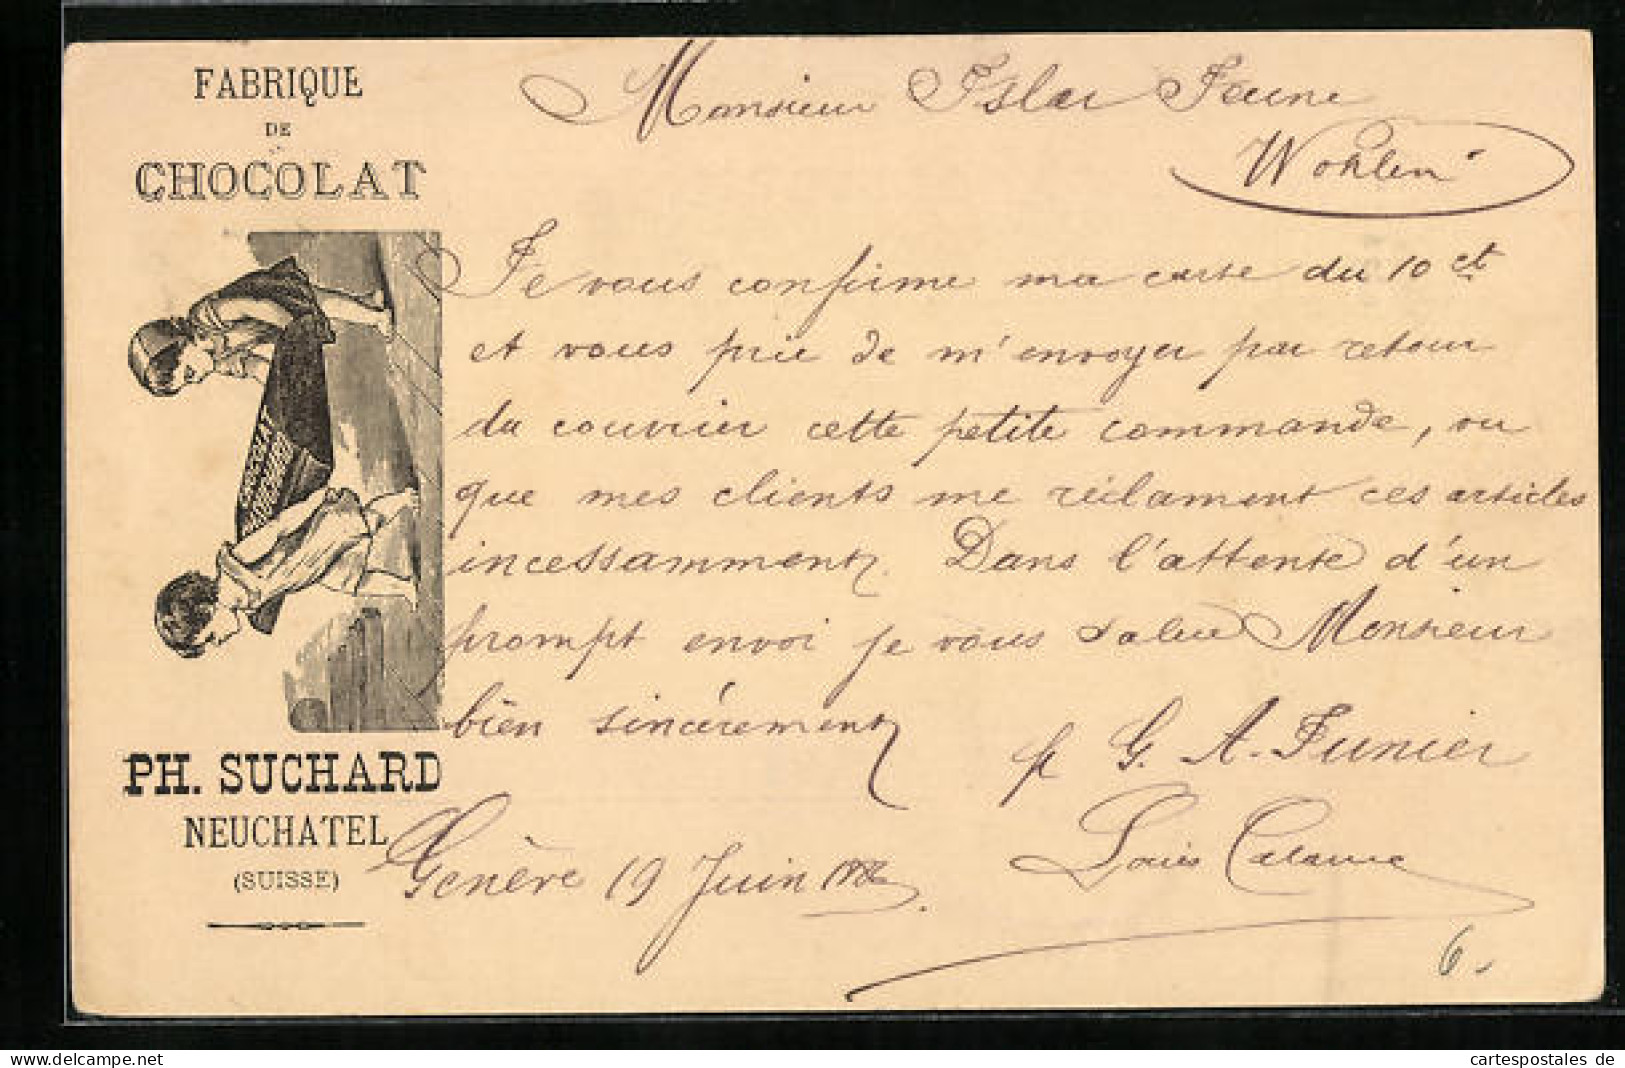 FABRIQUE
DE
CHOCOLAT
PH. SUCHARD
NEUCHATEL
(SUISSE)
Monsieur Isler Jeune
Wohlen
Je vous confirme ma carte du 10 ct
et vous prie de m'envoyer par retour
du courrier cette petite commande, vu
que mes clients me réclament ces articles
incessamment. Dans l'attente d'un
prompt envoi je vous salue Monsieur
bien sincèrement
p G. A. Junier
Louis Calame
Genève 19 Juin
6.
cartespostales de